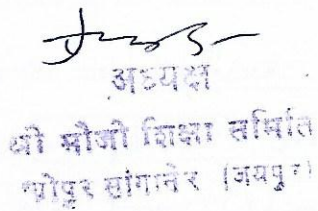 अध्यक्ष
श्री मौजी शिक्षा समिति
सांगानेर (जयपुर)